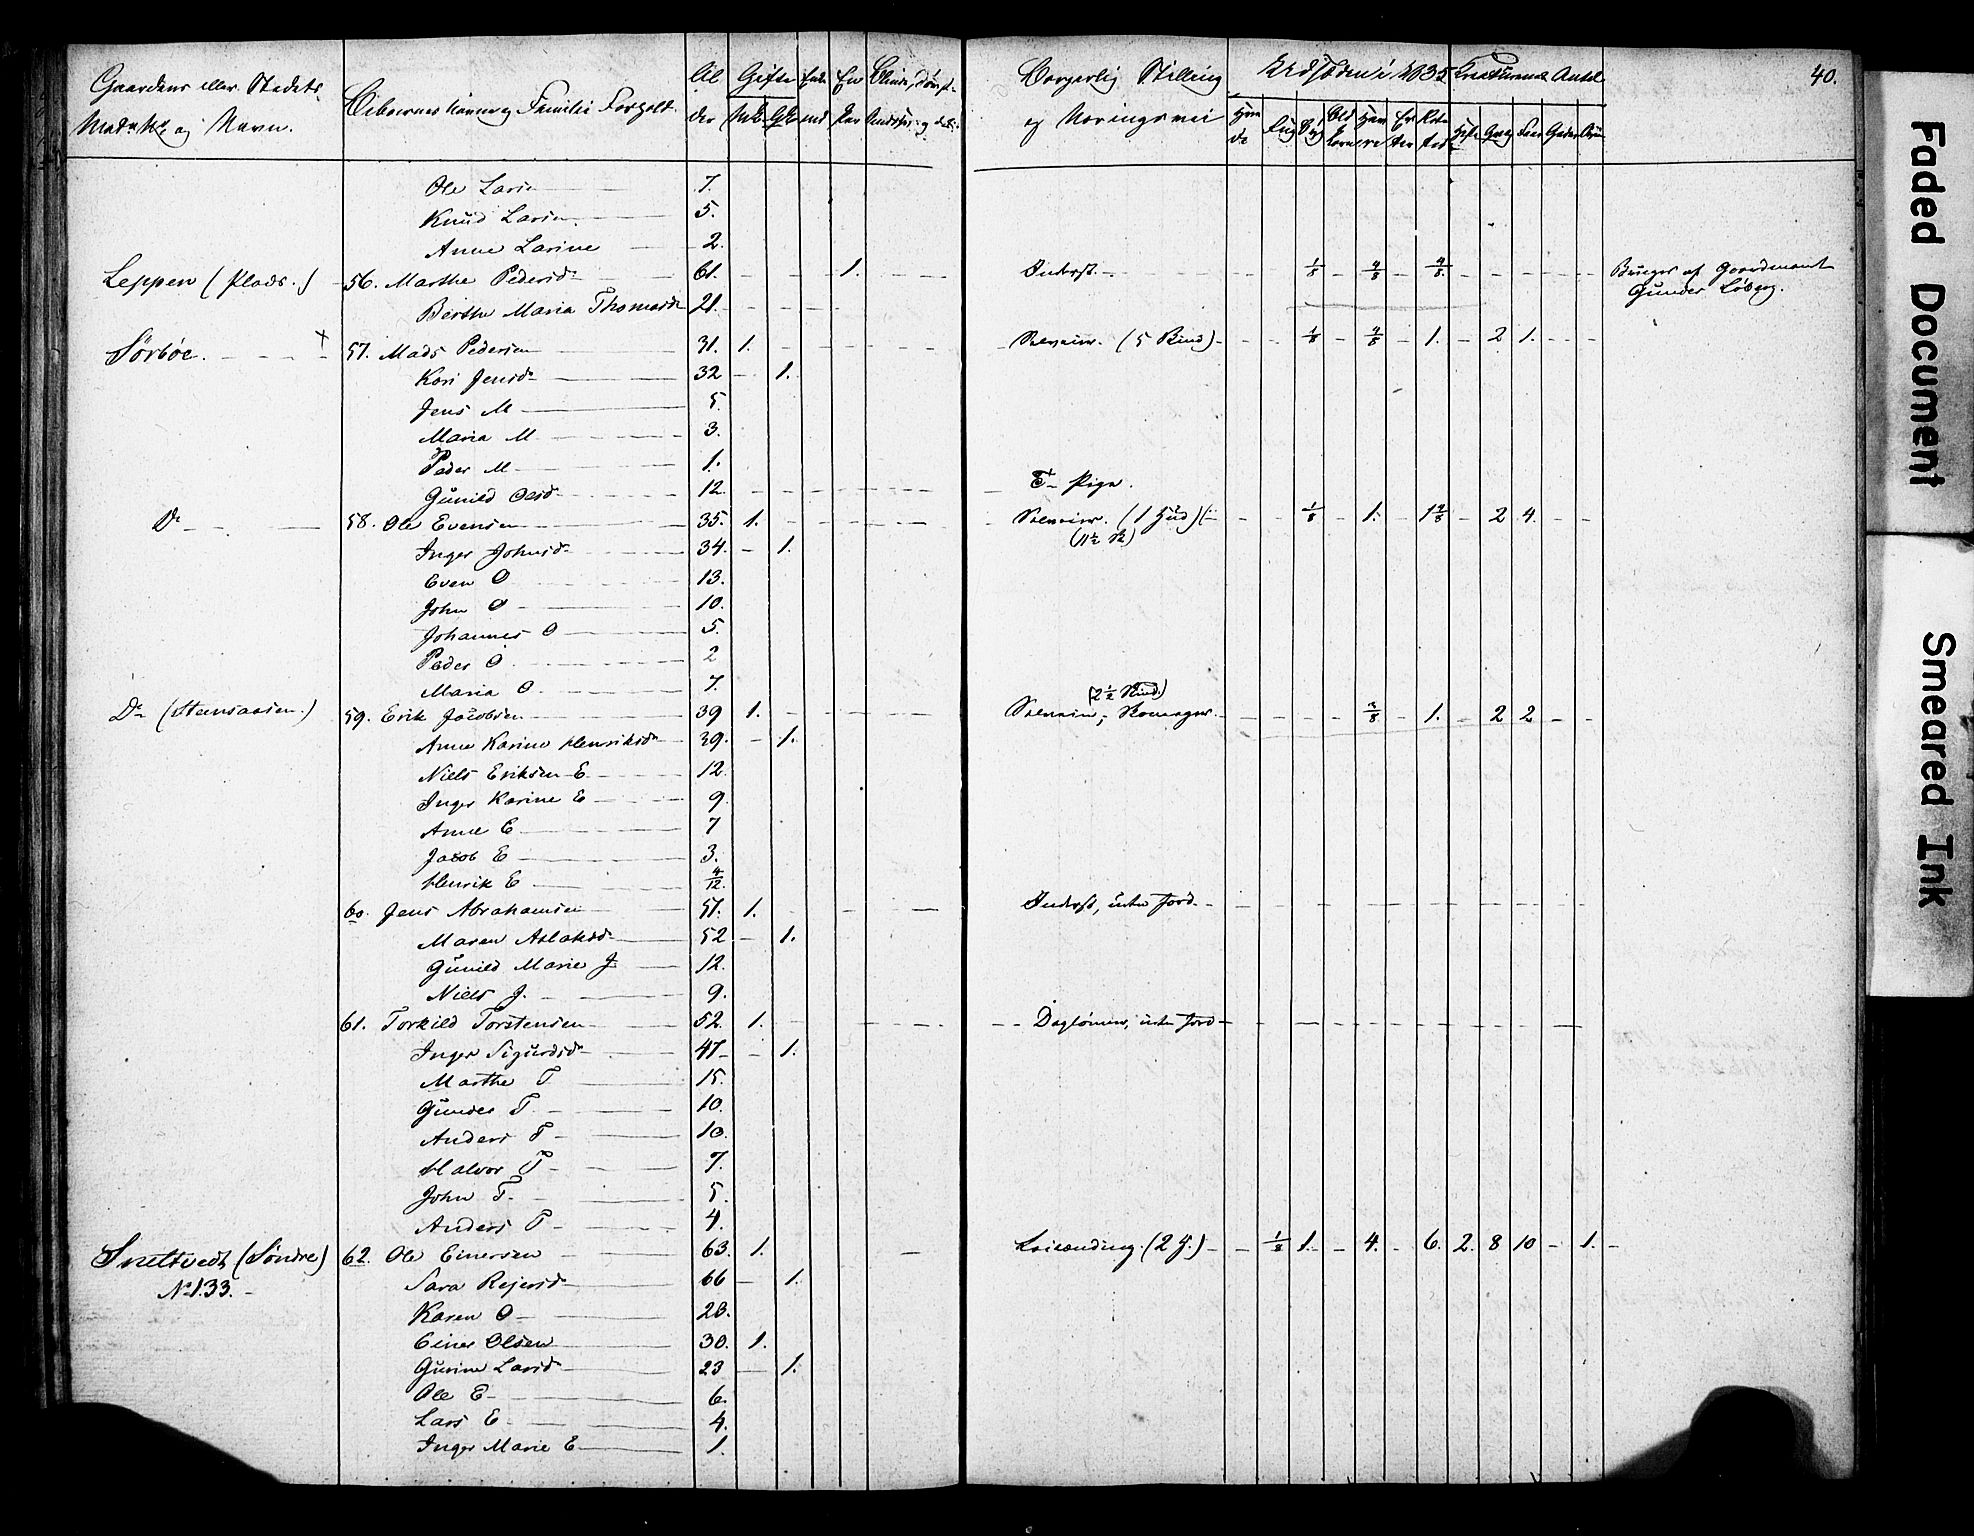 Gaardens eller Stedets Beboernes Navne og Familie Forhold. Al Gifte Enke En Blinde, Døvst. Borgerlig Stilling Udsæden i 1835 Kreaturenes Antal 40.
Matr. No og Navn. der Mk. Qk. md ker og Næringsvei Hve de Rug Byg Havre Er ter Heste Qvæg Faar Geder Sviin
Ole Larsen 7.
Knud Larsen 5.
Anne Larine 2.
Leppen (Plads.) 56. Marthe Pedersd. 61. 1. Inderst. 1/8 4/8 4/8 Bruges af Gaardmand
Berthe Maria Thomasd. 21. Gunder
Sörböe. 57. Mads Pedersen 31. 1. Selveier. (5 Skind) 1/8 4/8 1. 2 1.
Kari Jensd. 32 1.
Jens M 5.
Maria M 3.
Peder M 1.
Gunild Olsd. 12. T. Pige.
Do 58. Ole Evensen 35. 1. Selveier. (1 Hud) 1/8 1. 2 4.
Inger Johnsd. 34. 1. (11 1/2
Even O 13.
John O 10.
Johannes O 5.
Peder O 2
Maria O 7.
(2 1/2 Skind.)
Do (Steensaasen.) 59. Erik Jacobsen 39 1. Selveier, Skomager. 3/8 1. 2 2
Anne Karine Henriksd. 39. 1.
Niels Eriksen E 12.
Inger Karine E 9.
Anne E 7
Jacob E 3.
Henrik E 4/12.
60. Jens Abrahamsen 51. 1. Inderst, uden Jord
Maren Aslaksd. 52 1.
Gunild Marie J 12.
Niels J. 9.
61. Torkild Torstensen 52. 1. Daglönner, uden Jord
Inger Sigurdsd. 47 1.
Marthe T 15.
Gunder T. 10.
Anders T 10.
Halvor T 7.
John T. 5.
Anders T 4.
Sneltvedt (Söndre) 62. Ole Einersen 63. 1. Leilænding. (2 H.) 1/8 1. 4. 6. 2. 8 10 1.
No 133. Sara Rejersd. 66 1.
Karen O 28.
Einer Olsen 30. 1.
Gurine Larsd. 23 1.
Ole E 6.
Lars E 4.
Inger Marie E 1.
Faded Document
Smeared Ink